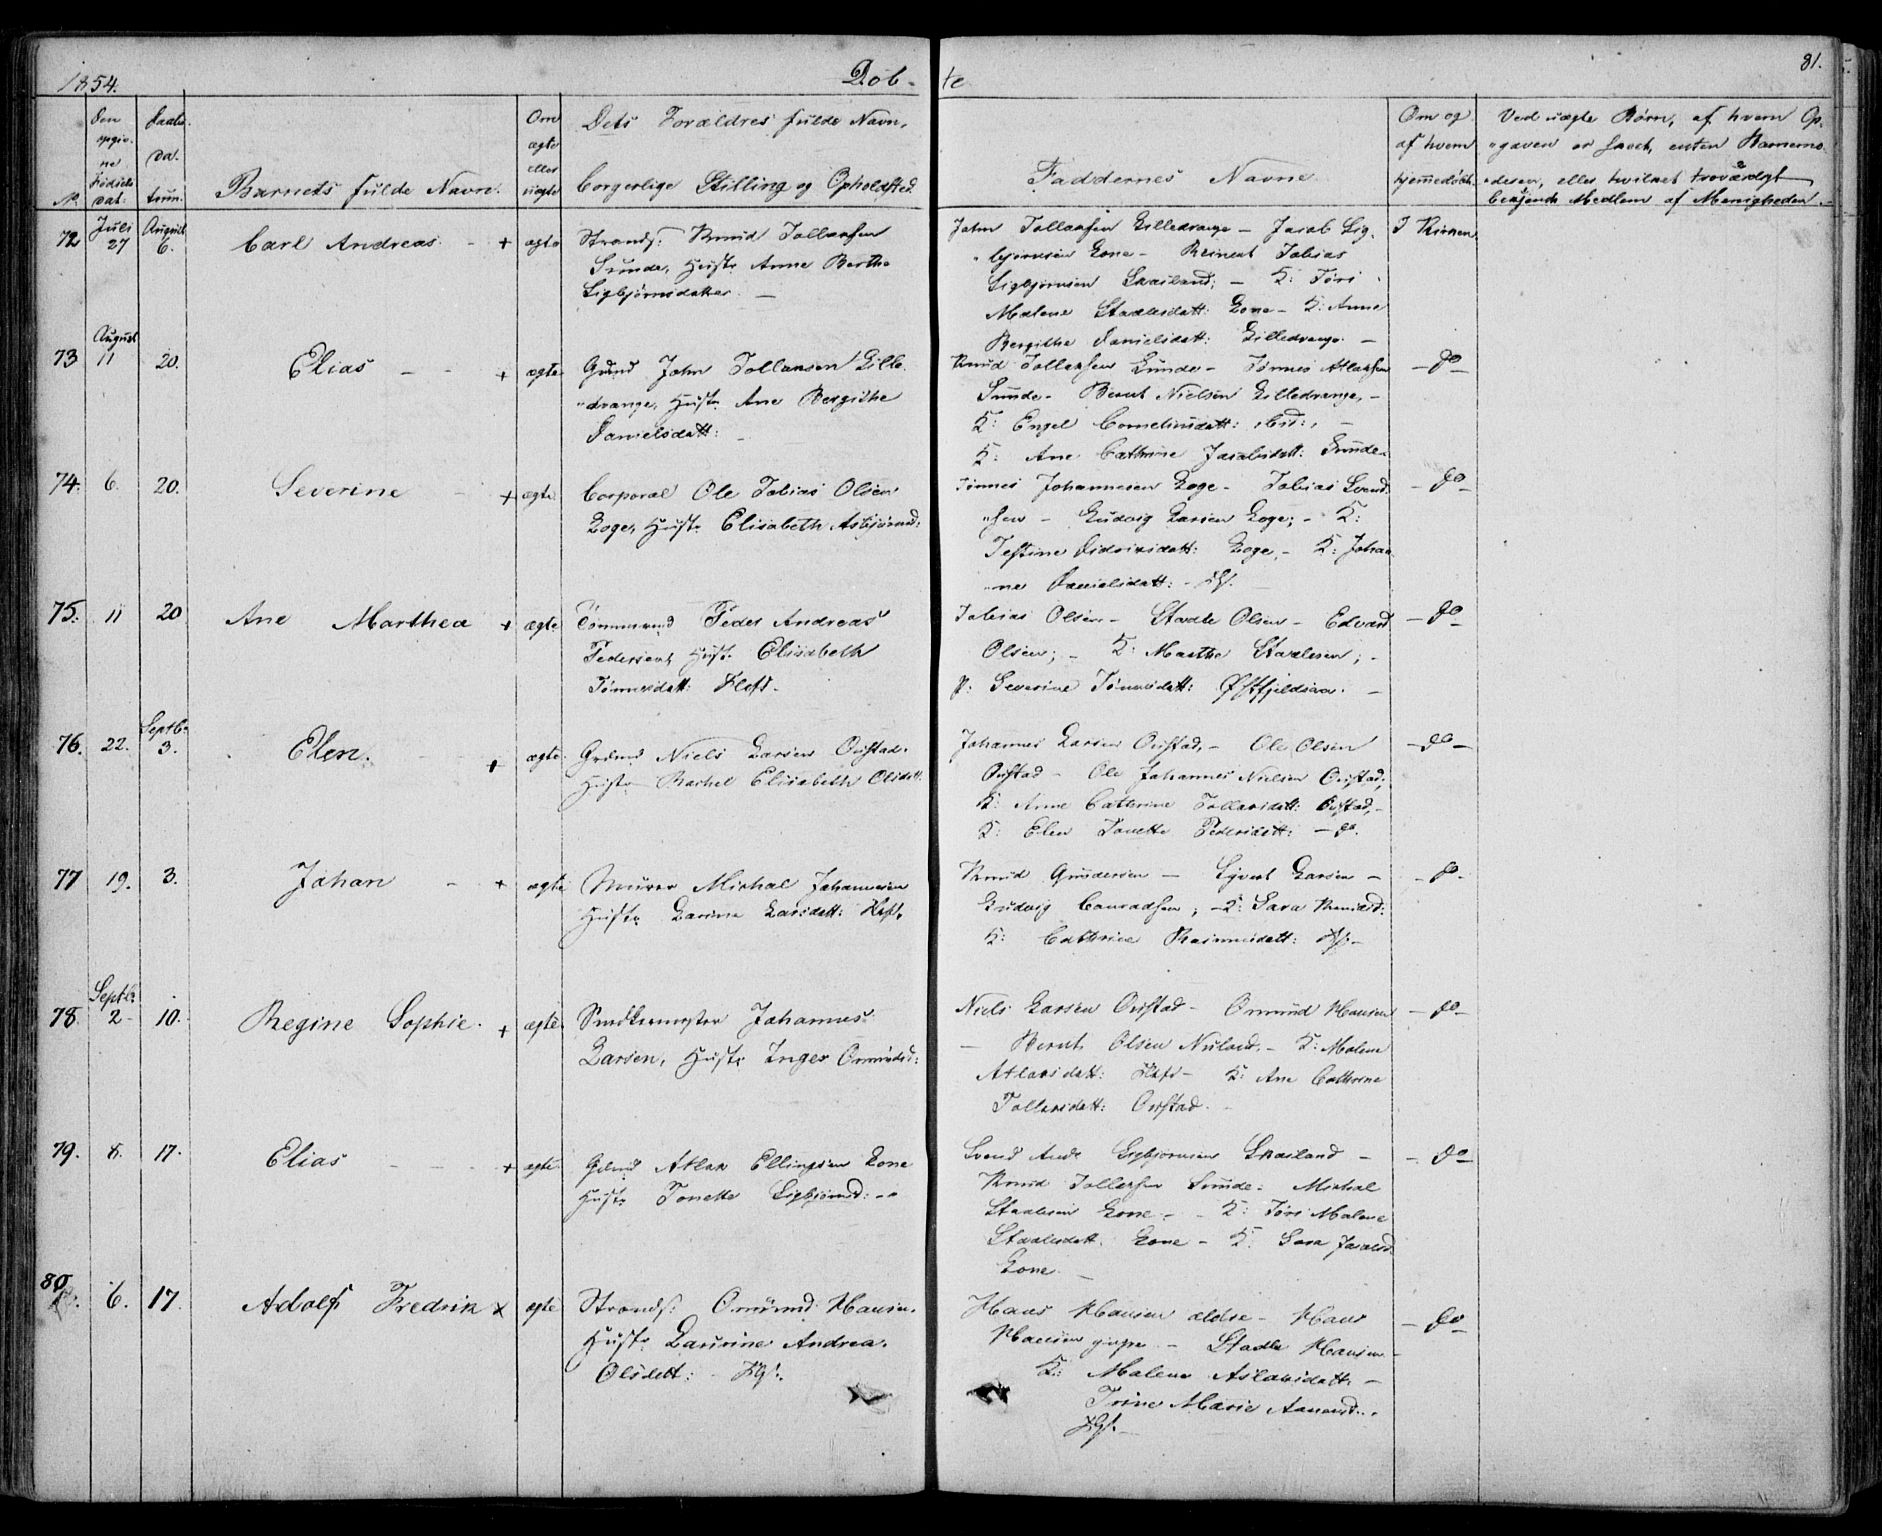 1854.
Døb-
te
81.
No.
Den opgivne Fødselsdat:
Daabsdatum.
Barnets fulde Navn.
Om ægte eller uægte
Dets Forældres fulde Navn,
borgerlige Stilling og Opholdsted.
Faddernes Navne.
Om og af hvem hjemmedøbt.
Ved uægte Børn, af hvem Op-
gaven er skeet, enten Barnemo-
deren, eller hvilket troværdigt
Medlem af Menigheden.
72 Juli 27 August 6. Carl Andreas. - + ægte
Strands: Knud Tollaksen
Sunde, Hustr Anne Berthe
Sigbjørnsdatter. -
John Tollaksen Lilledrange - Jacob Sig-
bjørnsen Lone - Reinert Tobias
Sigbjørnsen Skailand; - K: Tøri
Malene Staalesdatt: Lone - K: Anne
Bergithe Danielsdatt: Lilledrange. -
I Kirken.
73 August 11 20. Elias - - + ægte
Grdmd John Tollaksen Lille-
drange, Hustr Ane Bergithe
Danielsdatt: -
Knud Tollaksen Sunde - Tønnes Atlaksen
Sunde - Berent Nielsen Lilledrange, -
K: Engel Corneliusdatt: ibid: , -
K: Ane Cathrine Jacobsdatt: Sunde.
- do -
74. 6. 20. Severine - + ægte
Corporal Ole Tobias Olsen
Loge, Hustr Elisabeth Asbjørnsd:
Tønnes Johannesen Loge - Tobias Svend-
sen - Ludvig Larsen Loge; - K:
Didriksdatt: Loge, - K: Johan-
ne Danielsdatt: -
- do -
75. 11 20 Ane Marthea + ægte
Tømmermd Peder Andreas
Pedersen, Hust: Elisabeth
Tønnesdatt:
Tobias Olsen - Staale Olsen - Edvard
Olsen; - K: Marthe Stalesen; -
P: Severine Tønnesdatt: -
- do -
76. 22. Septbr 3. Elen. - + ægte.
Grdmd Niels Larsen Orstad.
Hustr Rachel Elisabeth Olsdatt.
Johannes Larsen Orstad, - Ole Olsen
Orstad - Ole Johannes Nielsen Orstad;
K: Anne Cathrine Tollaksdatt: Orstad, -
K: Elen Tonette Pedersdatt: - do.
- do -
77 19. 3. Johan - + ægte
Murer Michal Johannesen
Hustr Larine Larsdatt:
Knud Gundersen - Sivert Larsen -
Ludvig Conradsen; - K: Sara
K: Cathrine Rasmusdatt: -
- do -
78. Septbr 2 - 10. Regine Sophie. + ægte.
Snedkermester Johannes
Larsen, Hustr Inger Omundsd:
Niels Larsen Orstad - Omund Hansen
- Bernt Olsen - K: Malene
Atlaksdatt: - K: Ane Cathrine
Tollaksdatt: Orstad. -
- do -
79. 8. 17. Elias - - - + ægte.
Grdmd Atlak Ellingsen Lone
Hustr Tonette Sigbjørnsd: -
Svend Sigbjørnsen Skailand -
Knud Tollaksen Sunde - Michal
Stalesen Lone - - K: Tøri Malene
Staalesdatt. Lone - K. Sara Jacobsd
Lone. -
- do -
80. 6. 17. Adolf Fredrik x ægte
Strands: Omund Hansen.
Hustr Laurine Andrea.
Olsdatt: -
Hans Hansen ældre - Hans
Hansen yngre - Staale Hansen -
K: Malene Aslaksdatt -
Trine Marie
- do -